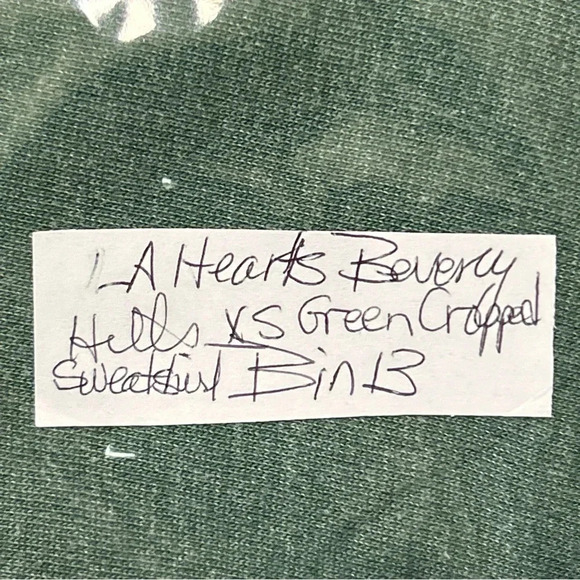 LA Hearts Beverly
Hills XS Green Cropped
Sweatshirt Bin 13